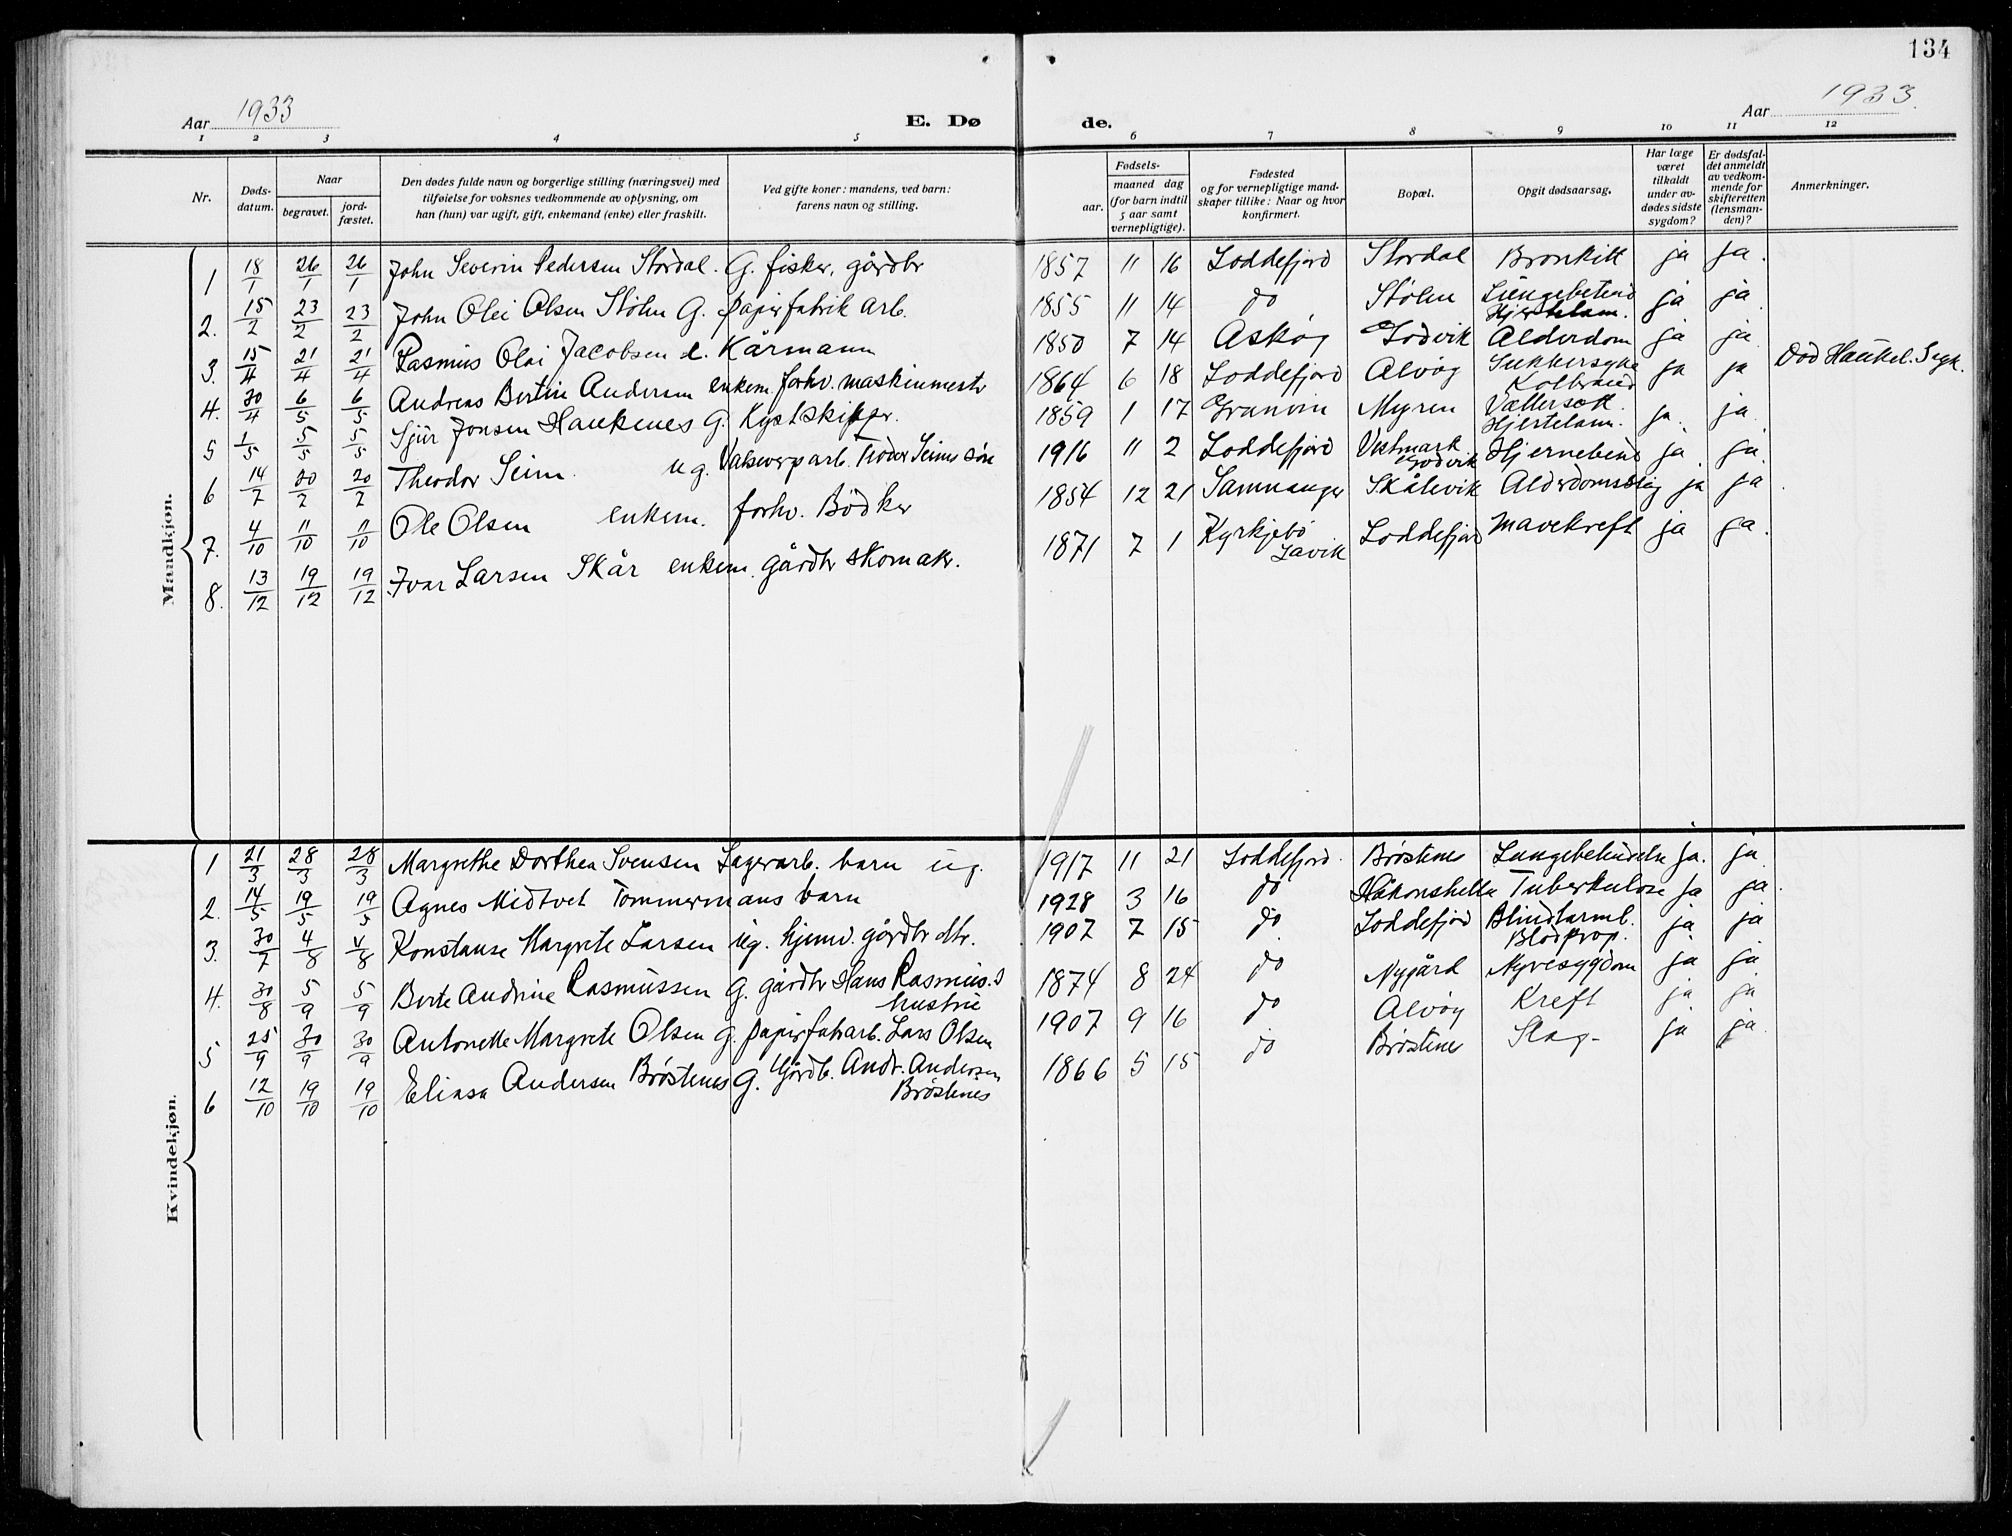 134
Aar 1933
E. Dø
de.
Aar 1933.
1 2 3 4 5 6 7 8 9 10 11 12
Nr.
Døds-
datum.
Naar
begravet.
jord-
fæstet.
Den dødes fulde navn og borgerlige stilling (næringsvei) med
tilføielse for voksnes vedkommende av oplysning, om
han (hun) var ugift, gift, enkemand (enke) eller fraskilt.
Ved gifte koner: mandens, ved barn:
farens navn og stilling.
Fødsels-
aar.
maaned dag
(for barn indtil
5 aar samt
vernepligtige).
Fødested
og for vernepligtige mand-
skaper tillike: Naar og hvor
konfirmert.
Bopæl.
Opgit dødsaarsag.
Har læge
været
tilkaldt
under av-
dødes sidste
sygdom?
Er dødsfal-
det anmeldt
av vedkom-
mende for
skifteretten
(lensman-
den)?
Anmerkninger.
Mandkjøn.
1 18/1 26/1 26/1 John Severin Pedersen Stordal. G. fisker, gårdbr 1857 11 16 Loddefjord Stordal Bronkitt ja ja.
2. 15/2 23/2 23/2 John Olei Olsen Stølen G. papirfabrik arb. 1855 11 14 do Stølen Lungebetend Hjertelam. ja ja
3. 15/4 21/4 21/4 Rasmus Olai Jacobsen e. Kårmann 1850 7 14 Askøy Godvik Alderdom ja ja
4. 30/4 6/5 6/5 Andreas Bertin Andersen enkem. forhv. maskinmestr 1864 6 18 Loddefjord Alvøy Sukkersyke Kolbrand ja ja Død Haukel. Syk.
5 1/5 5/5 5/5 Sjur Jonsen Haukenes G. Kystskipper. 1859 1 17 Granvin Myren Vattersott. Hjertelam. ja. ja.
6 14/7 20/7 20/7 Theodor Seim. ug. Valseverparb. Teodor Seims søn 1916 11 2 Loddefjord Vestmark Godvik Hjernebend ja ja
7. 4/10 11/10 11/10 Ole Olsen enkem. forhv. Bödker 1854 12 21 Samnanger Skålevik Alderdomssvag ja ja
8. 13/12 19/12 19/12 Ivar Larsen Skår enkem. gårdbr skomakr. 1871 7 1 Kyrkjebø Lavik Loddefjord Mavekreft ja ja.
Kvindekjøn.
1 21/3 28/3 28/3 Margrethe Dorthea Svensen Lagerarb. barn ug. 1917 11 21 Loddefjord Brøstenes Lungebetendelse ja. ja
2. 14/5 19/5 19/5 Agnes Midtvet Tømmermans barn 1928 3 16 do Håkonshella Tuberkulose ja ja.
3. 30/7 4/8 4/8 Konstanse Margrete Larsen ug. hjemv. gårdbr dtr. 1907 7 15 do Loddefjord Blindtarmb. Blodprop. ja ja
4. 30/8 5/9 5/9 Berte Andrine Rasmussen G. gårdbr Hans Rasmus.s hustru 1874 8 24 do Nygård Nyresygdom ja ja
5 25/9 30/9 30/9 Antonette Margrete Olsen G. papirfabarb. Lars Olsen 1907 9 16 do Alvøy Kreft ja ja
6 12/10 19/10 19/10 Eliasa Andersen Brøstenes G. Gårdb. Andr. Andersen Brøstenes 1866 5 15 do Brøstenes Slag- ja ja.